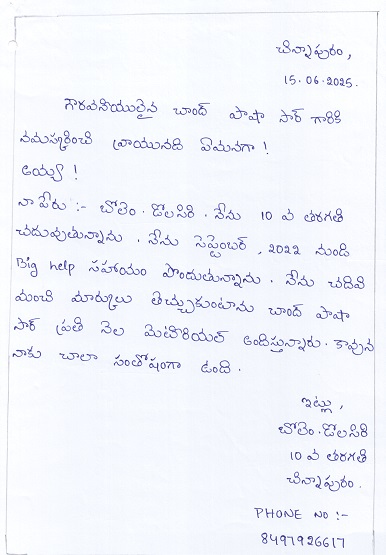 చిన్నాపురం,
15.06.2025.
గౌరవనీయులైన చాంద్ పాషా సార్ గారికి
నమస్కరించి వ్రాయునది ఏమనగా!
అయ్యా!
నా పేరు :- చోలెం. డోలసిరి. నేను 10 వ తరగతి
చదువుతున్నాను. నేను సెప్టెంబర్, 2022 నుండి
Big help సహాయం పొందుతున్నాను. నేను చదివి
మంచి మార్కులు తెచ్చుకుంటాను చాంద్ పాషా
సార్ ప్రతి నెల మెటీరియల్ అందిస్తున్నారు. కావున
నాకు చాలా సంతోషంగా ఉంది.
ఇట్లు,
చోలెం. డోలసిరి
10 వ తరగతి
చిన్నాపురం.
PHONE NO :-
8497926617